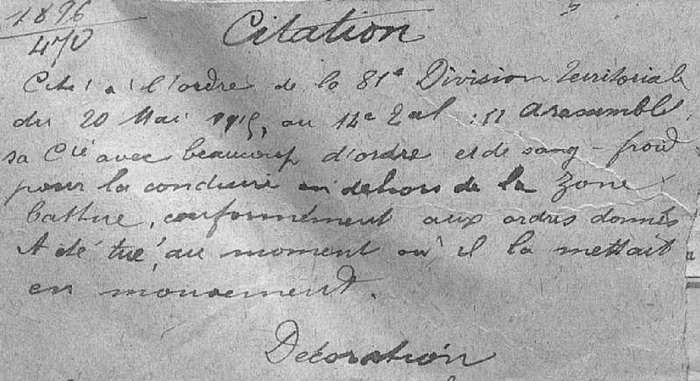 1896
470
Citation
Cité à l'ordre de la 81e Division Territoriale
du 20 Mai 1915, au 14e Bat : "A rassemblé
sa Cie avec beaucoup d'ordre et de sang-froid
pour la conduire en dehors de la zone
battue, conformément aux ordres donnés
A été tué au moment où il la mettait
en mouvement.
Décoration